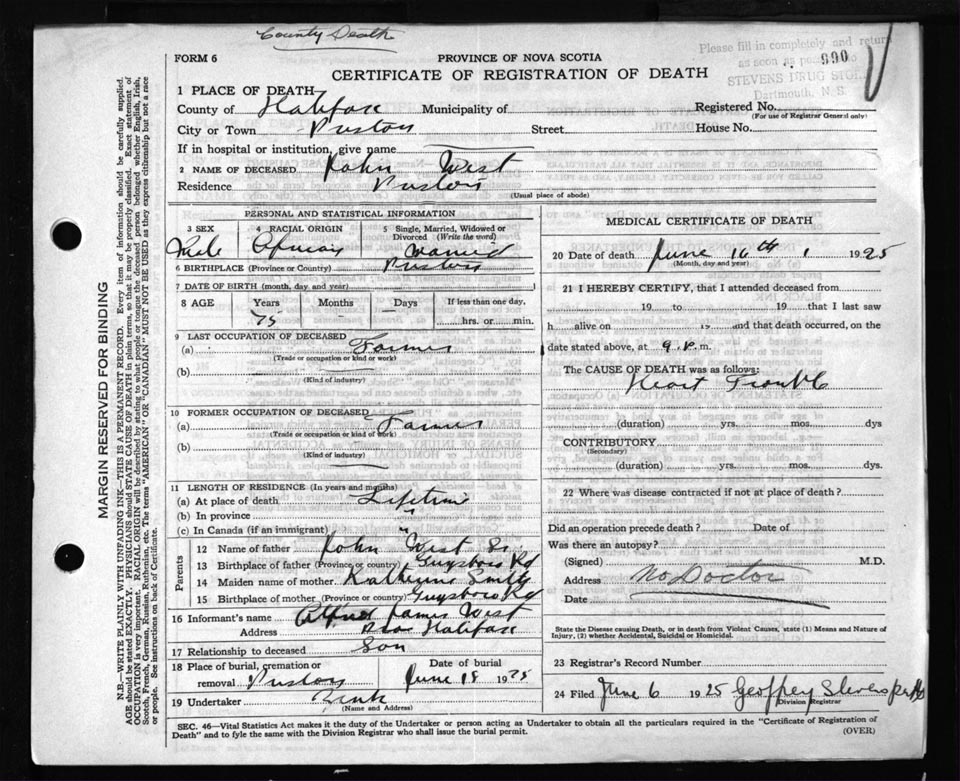 County Death
FORM 6
PROVINCE OF NOVA SCOTIA
CERTIFICATE OF REGISTRATION OF DEATH
Please fill in completely and return
as soon as
990
STEVENS DRUG STORE
Dartmouth, N. S.
1 PLACE OF DEATH
County of Halifax Municipality of
Registered No.
(For use of Registrar General only)
City or Town Preston Street House No.
If in hospital or institution, give name
2 NAME OF DECEASED John West
Residence Preston
(Usual place of abode)
PERSONAL AND STATISTICAL INFORMATION
3 SEX
Male
4 RACIAL ORIGIN
African
5 Single, Married, Widowed or Divorced (Write the word)
Married
6 BIRTHPLACE (Province or Country) Preston
7 DATE OF BIRTH (month, day and year)
8 AGE Years Months Days If less than one day,
75 – – hrs. or min.
9 LAST OCCUPATION OF DECEASED
(a) Farmer
(Trade or occupation or kind or work)
(b)
(Kind of industry)
10 FORMER OCCUPATION OF DECEASED
(a) Farmer
(Trade or occupation or kind of work)
(b)
(Kind of industry)
11 LENGTH OF RESIDENCE (In years and months)
(a) At place of death Lifetime
(b) In province "
(c) In Canada (if an immigrant) "
Parents
12 Name of father John West Sr
13 Birthplace of father (Province or country) Guysboro Rd
14 Maiden name of mother Katherine Smith
15 Birthplace of mother (Province or country) Guysboro Rd
16 Informant's name Alfred James West
Address Halifax
17 Relationship to deceased Son
18 Place of burial, cremation or
removal Preston
Date of burial
June 18 1925
19 Undertaker
(Name and Address)
MEDICAL CERTIFICATE OF DEATH
20 Date of death June 16th 1925
(Month, day and year)
21 I HEREBY CERTIFY, that I attended deceased from
19 to 19 that I last saw
h alive on 19 and that death occurred, on the
date stated above, at 9 P. m.
The CAUSE OF DEATH was as follows:
Heart Trouble
(duration) yrs. mos. dys
CONTRIBUTORY
(Secondary)
(duration) yrs. mos. dys.
22 Where was disease contracted if not at place of death?
Did an operation precede death? Date of
Was there an autopsy?
(Signed) M.D.
Address No Doctor
Date
State the Disease causing Death, or in death from Violent Causes, state (1) Means and Nature of Injury, (2) whether Accidental, Suicidal or Homicidal.
23 Registrar's Record Number
24 Filed June 6 1925 Geoffrey Stevens
Division Registrar
SEC. 46—Vital Statistics Act makes it the duty of the Undertaker or person acting as Undertaker to obtain all the particulars required in the "Certificate of Registration of
Death" and to fyle the same with the Division Registrar who shall issue the burial permit.
(OVER)
MARGIN RESERVED FOR BINDING
N.B.—WRITE PLAINLY WITH UNFADING INK—THIS IS A PERMANENT RECORD. Every item of information should be carefully supplied.
AGE should be stated EXACTLY. PHYSICIANS should STATE CAUSE OF DEATH in plain terms, so that it may be properly classified. Exact statement of
OCCUPATION is very important. RACIAL ORIGIN will be described by stating to what people or tongue the deceased person belonged whether English, Irish,
Scotch, French, German, Russian, Ruthenian, etc. The terms "AMERICAN" OR "CANADIAN" MUST NOT BE USED as they express citizenship but not a race
or people. See instructions on back of Certificate.